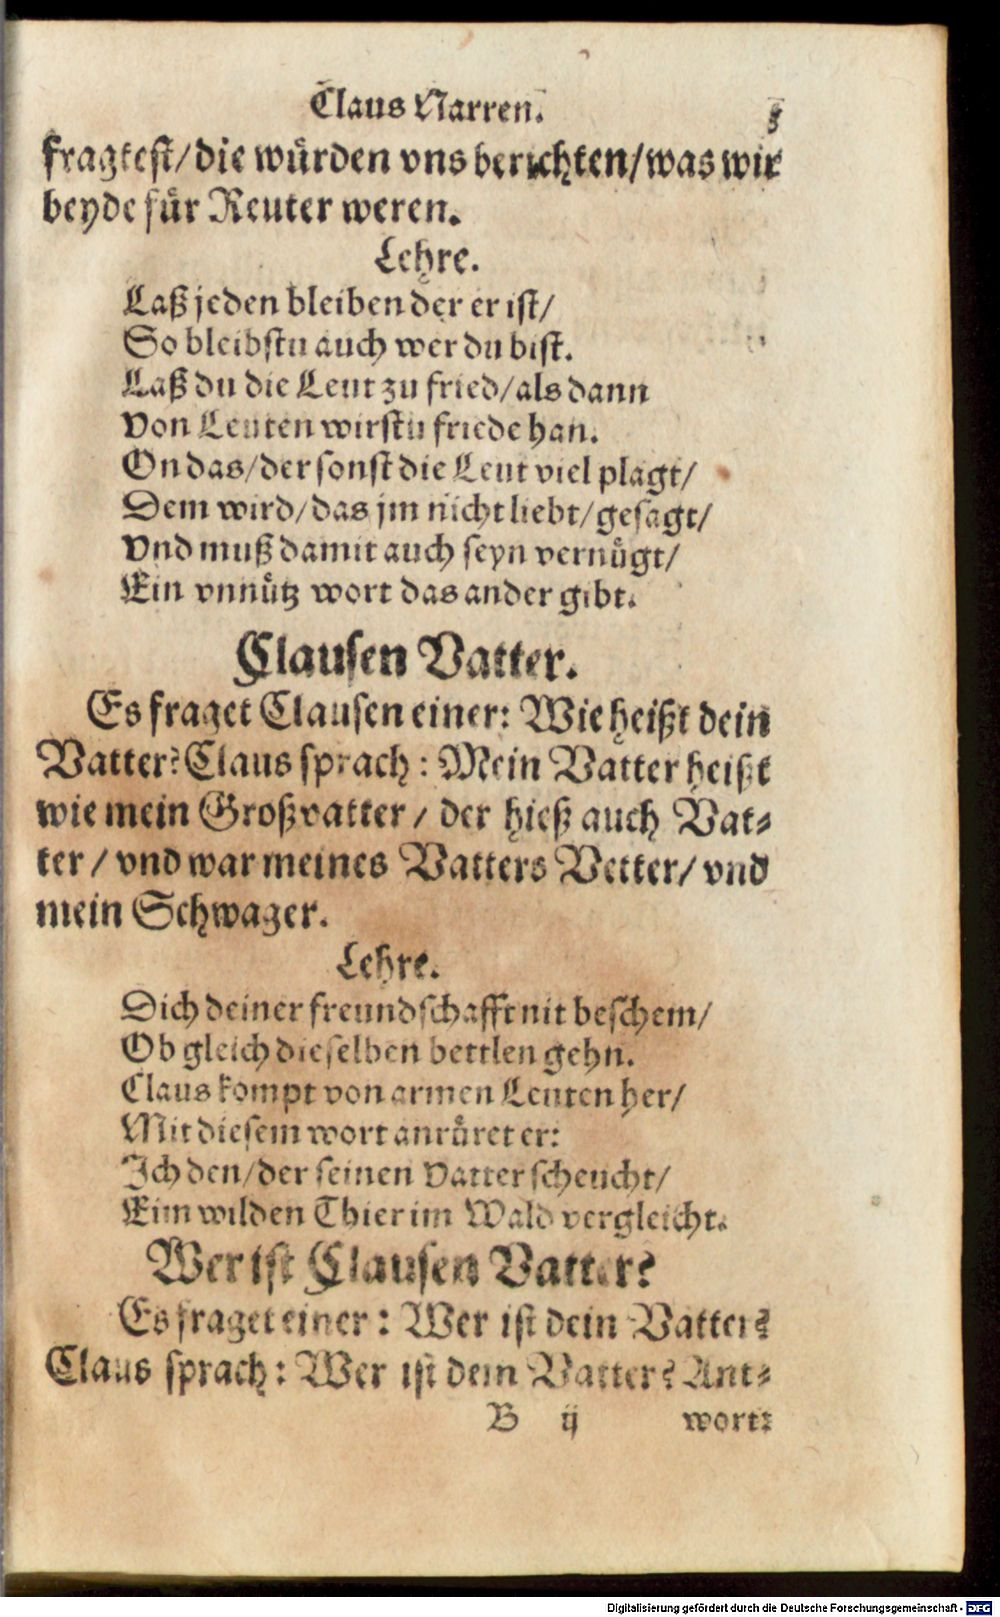 Claus Narren.
fragtest/die würden vns berichten/was wir
beyde für Reuter weren.
Lehre.
Laß jeden bleiben der er ist/
So bleibstu auch wer du bist.
Laß du die Leut zu fried/als dann
Von Leuten wirstu friede han.
On das/der sonst die Leut viel plagt/
Dem wird/das jm nicht liebt/gesagt/
Vnd muß damit auch seyn vernügt/
Ein vnnütz wort das ander gibt.
Clausen Vatter.
Es fraget Clausen einer: Wie heißt dein
Vatter? Claus sprach: Mein Vatter heißt
wie mein Großvatter/ der hieß auch Vat-
ter/ vnd war meines Vatters Vetter/ vnd
mein Schwager.
Lehre.
Dich deiner freundschafft nit beschem/
Ob gleich dieselben bettlen gehn.
Claus kompt von armen Leuten her/
Mit diesem wort anrüret er:
Ich den/der seinen Vatter scheucht/
Eim wilden Thier im Wald vergleicht.
Wer ist Clausen Vatter?
Es fraget einer: Wer ist dein Vatter?
Claus sprach: Wer ist dein Vatter? Ant-
B ij wort:
Digitalisierung gefördert durch die Deutsche Forschungsgemeinschaft - DFG